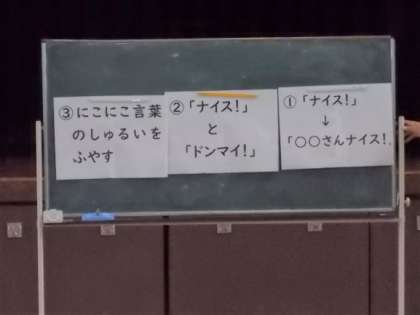 ①「ナイス!」
↓
「○○さんナイス!
②「ナイス!」
と
「ドンマイ!」
③にこにこ言葉
のしゅるいを
ふやす